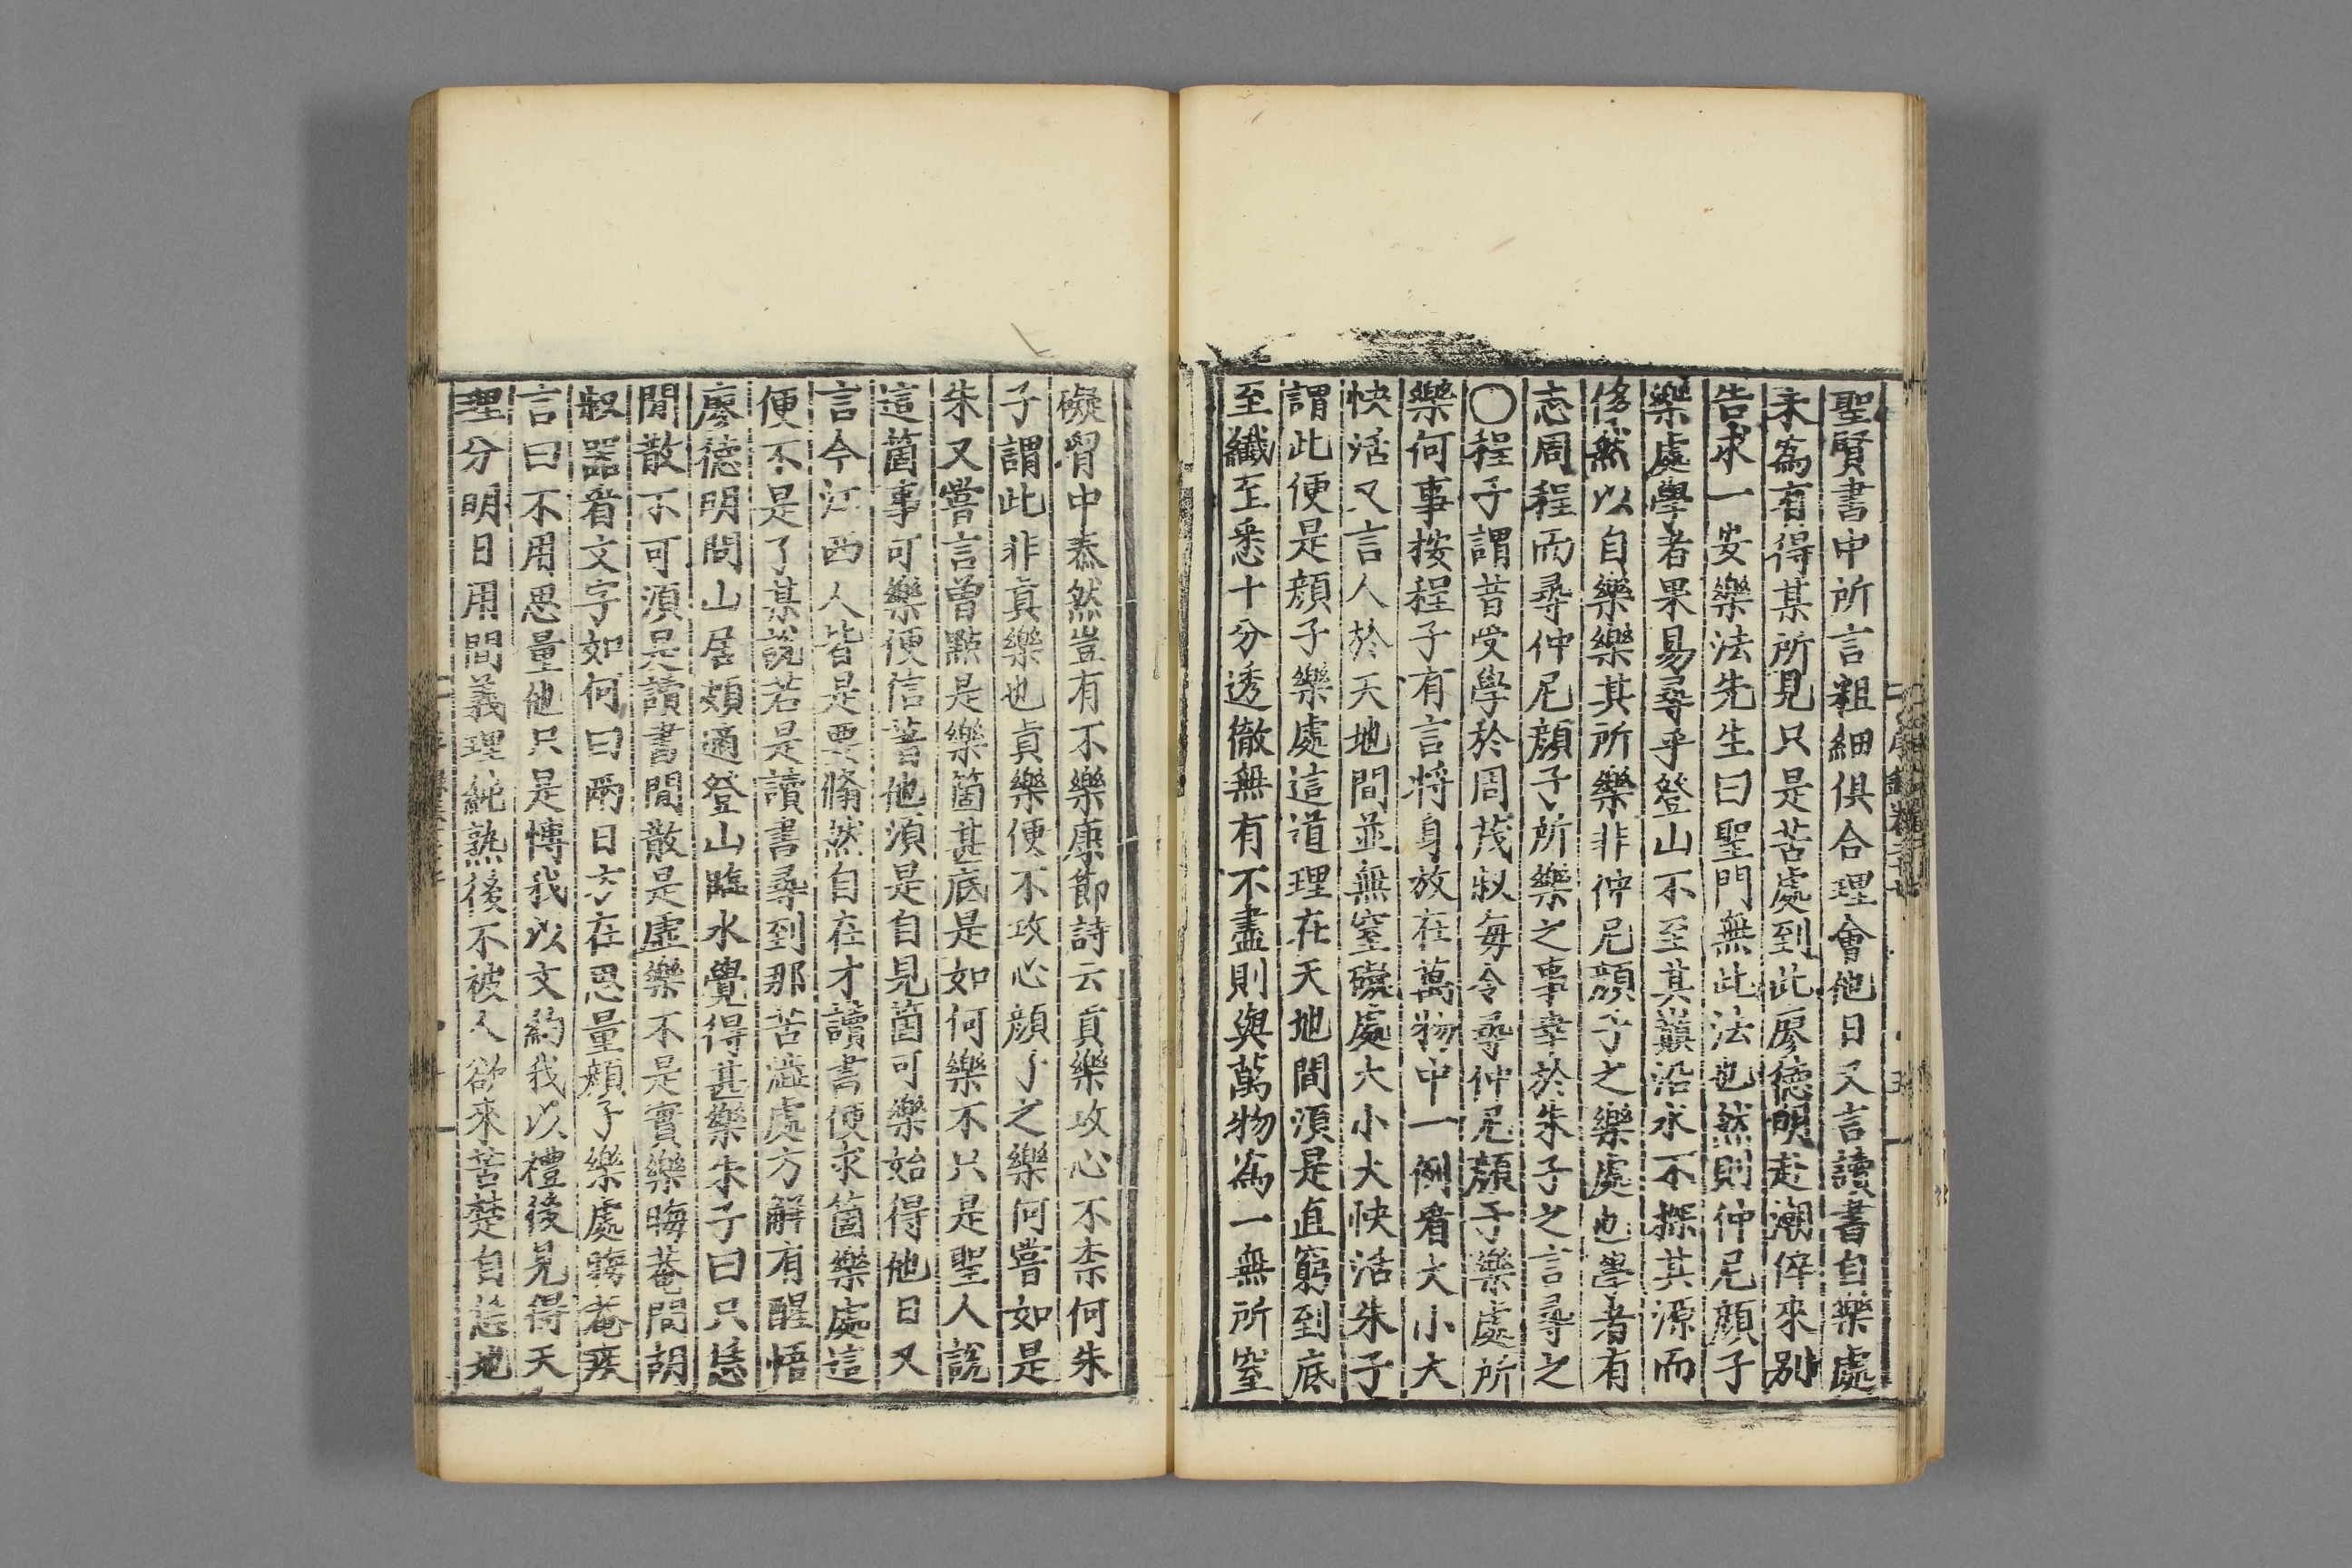 聖賢書中所言粗細俱合理會他日又言讀書自樂處
未爲有得某所見只是苦處到此廖德明赴潮倅來別
告求一安樂法先生曰聖門無此法也然則仲尼顔子
樂處學者果易尋乎登山不至其巔沿水不探其源而
侈然以自樂樂其所樂非仲尼顔子之樂處也學者有
志周程而尋仲尼顔子所樂之事幸於朱子之言尋之
〇程子謂昔受學於周茂叔每令尋仲尼顔子樂處所
樂何事按程子有言將身放在萬物中一例看大小大
快活又言人於天地間並無窒礙處大小大快活朱子
謂此便是顔子樂處這道理在天地間須是直窮到底
至纖至悉十分透徹無有不盡則與萬物爲一無所窒
礙胷中泰然豈有不樂康節詩云眞樂攻心不柰何朱
子謂此非真樂也真樂便不攻心顔子之樂何嘗如是
朱又嘗言曾點是樂箇甚底是如何樂不只是聖人說
這箇事可樂便信著他須是自見箇可樂始得他日又
言今江西人皆是要翛然自在才讀書便求箇樂處這
便不是了某說若是讀書尋到那苦澁處方解有醒悟
廖德明問山居頗適登山臨水覺得甚樂朱子曰只恁
閒散不可須是讀書閒散是虛樂不是實樂晦菴問胡
叔器看文字如何曰兩日方在思量顔子樂處晦菴疾
言曰不用思量他只是博我以文約我以禮後見得天
理分明日用間義理純熟後不被人欲來苦楚自恁地